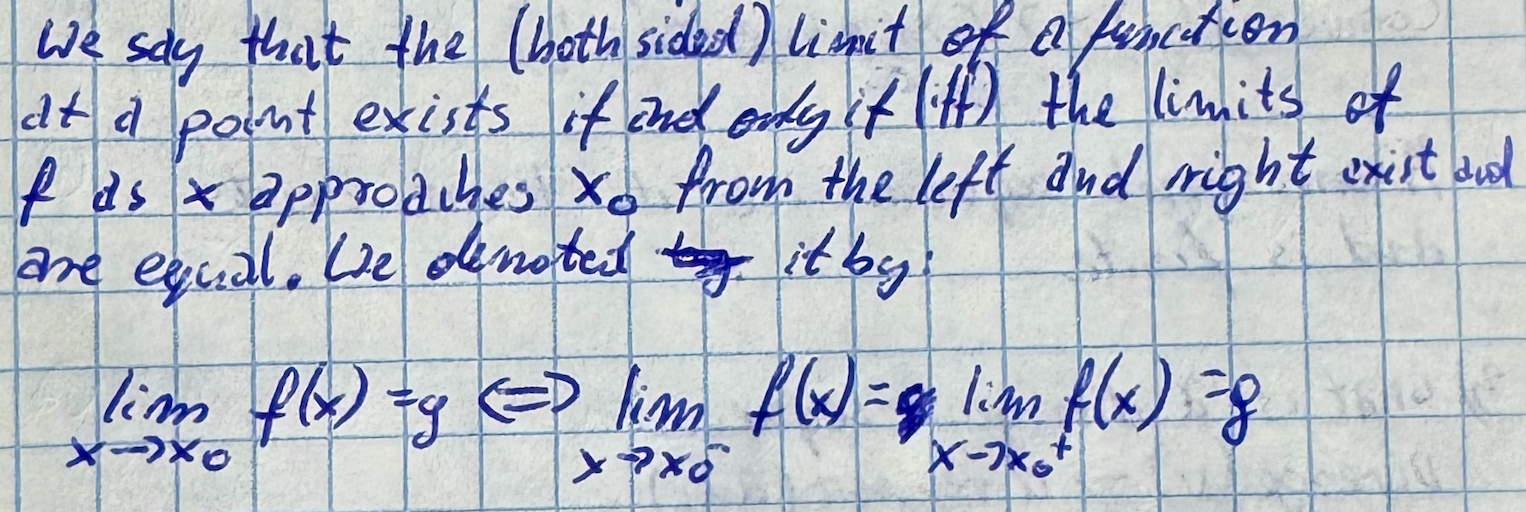 We say that the (both sided) limit of a function
at a point exists if and only if (iff) the limits of
f as x approaches x₀ from the left and right exist and
are equal. We denoted it by:
lim f(x) = g ⟺ lim f(x) = lim f(x) = g
x→x₀ x→x₀⁻ x→x₀⁺